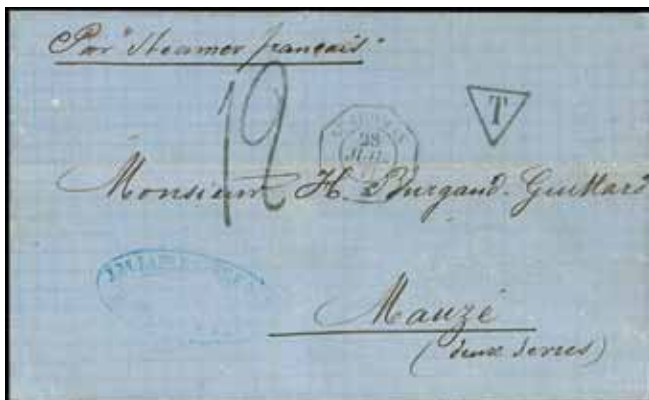 Par "Steamer français"
12
T
28
JUIL.
Monsieur H. Burgaud-Guillard
Mauzé
(deux sevres)